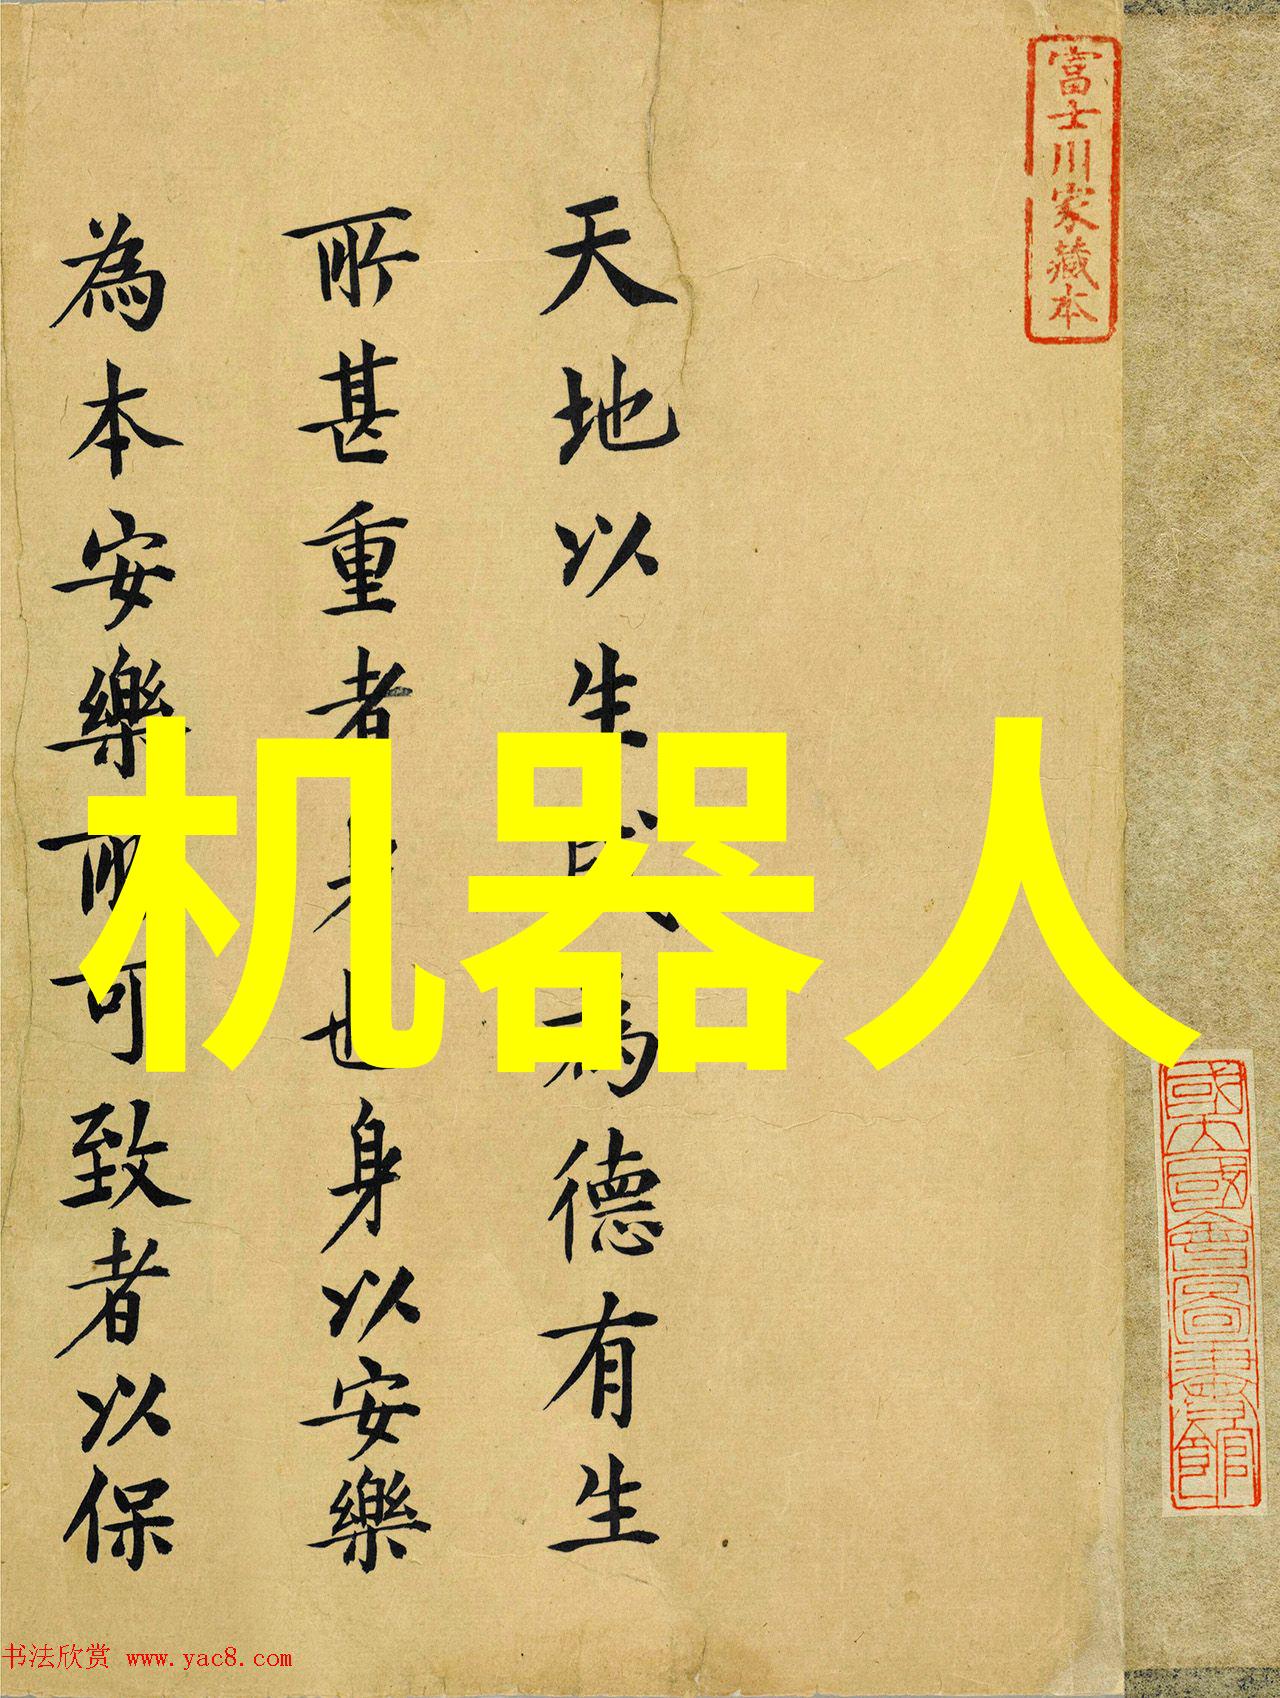 富士川家藏本
天地以生民為德有生
所甚重者身也身以安樂
為本安樂所可致者以保
机器人
國立國會圖書館
书法欣赏 www.yac8.com